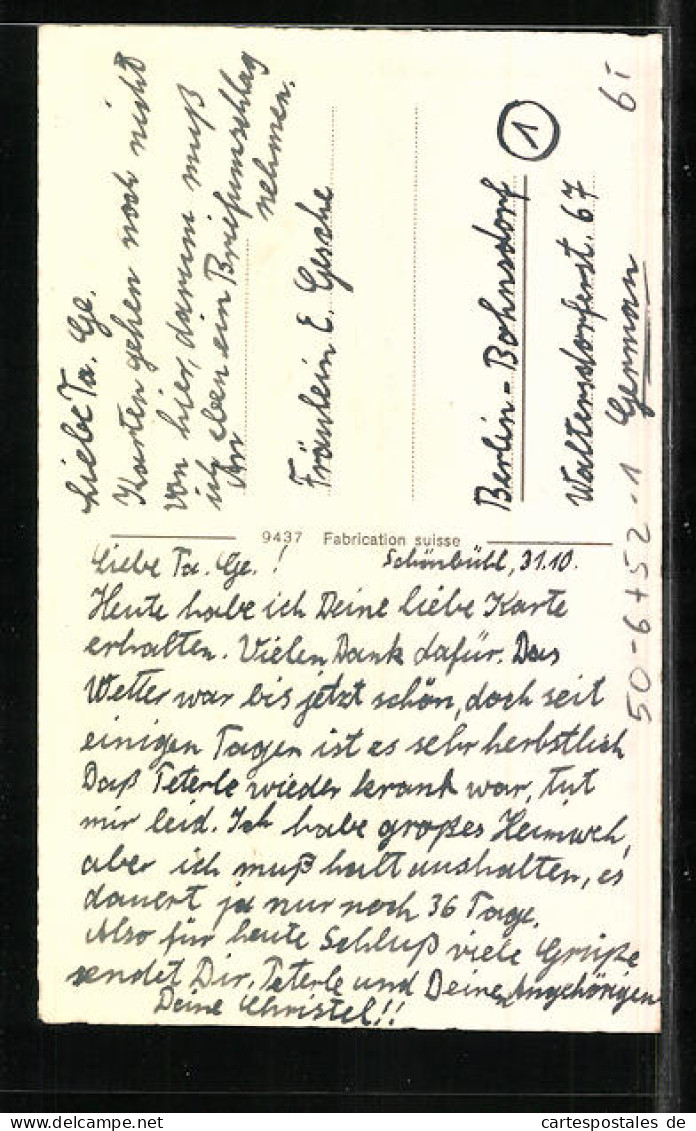 Liebe Ta. Ge.
Karten gehen noch nicht
von hier, darum muß
ich eben ein Briefumschlag
nehmen.
An
Fräulein E. Gesche
Berlin-Bohnsdorf
1
Waltersdorferst. 67
German
6T
50-6+52-1
9437 Fabrication suisse
Liebe Ta. Ge.! Schönbühl, 31.10.
Heute habe ich Deine liebe Karte
erhalten. Vielen Dank dafür. Das
Wetter war bis jetzt schön, doch seit
einigen Tagen ist es sehr herbstlich
Daß Peterle wieder krank war, tut
mir leid. Ich habe großes Heimweh,
aber ich muß halt aushalten, es
dauert ja nur noch 36 Tage.
Also für heute Schluß viele Grüße
sendet Dir, Peterle und Deinen Angehörigen
Deine Christel!!
www.oldthing.de
cartespostales de